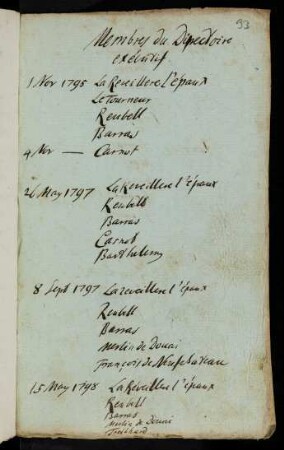 93
Membres du Directoire
executif
1 Nov 1795 La Reveillere l'épaux
Le Tourneur
Reubell
Barras
4 Nov — Carnot
26 May 1797 La Reveillere l'épaux
Reubell
Barras
Carnot
Barthelemy
8 Sept 1797 La reveillere l'épaux
Reubell
Barras
Merlin de Douai
François de Neufchateau
15 May 1798 La Reveillere l'épaux
Reubell
Barras
Merlin de Douai
Treilhard